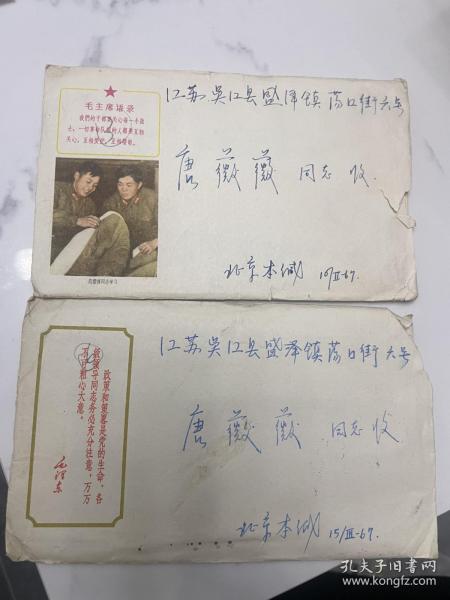 毛主席语录
我们的干部要关心每一个战
士，一切革命队伍的人都要互相
关心，互相爱护，互相帮助。
江苏吴江县盛泽镇荡口街六号
唐薇薇 同志 收
北京本缄 10/III-67.
政策和策略是党的生命，各
级领导同志务必充分注意，万万
不可粗心大意。
毛泽东
江苏吴江县盛泽镇荡口街六号
唐薇薇 同志 收
北京本缄 15/III-67
孔夫子旧书网
www.kongfz.com